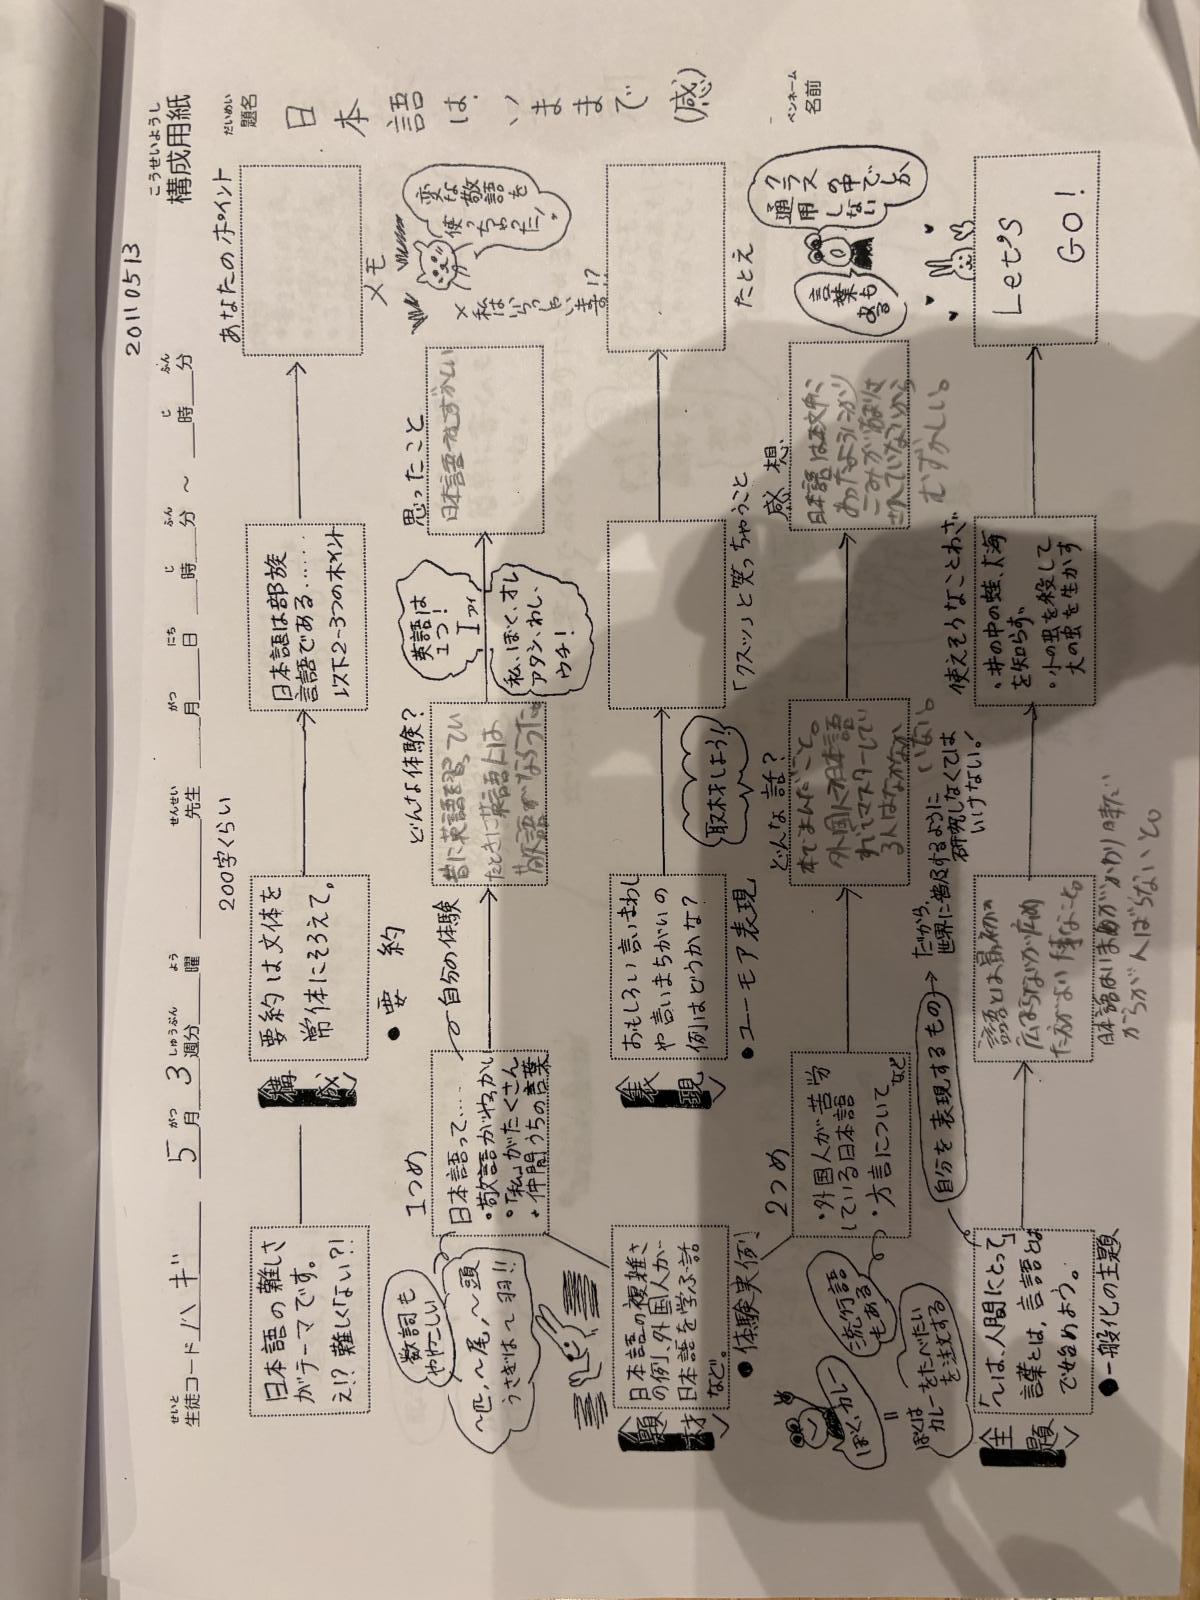 20110513
こうせいようし
構成用紙
せいと
生徒コード ハギ 5月 3週分 曜 先生 月 日 時 分 ～ 時 分
がつ しゅうぶん よう せんせい がつ にち じ ふん じ ふん
だいめい
題名
日本語は、いままで(感)
ペンネーム
名前
200字くらい
あなたのポイント
日本語の難しさ
がテーマです。
え!? 難しくない?!
<構
成>
要約は文体を
常体にそろえて。
日本語は部族
言語である……
以下2~3つのポイント
●要約
メモ
変な敬語を
使っちゃった!
×私はいらっしゃい
ます!?
1つめ
数詞も
ややこしい
～匹,～尾,～頭
うさぎは～羽!!
日本語って…
・敬語がややこしい
・「私」がたくさん
・仲間うちの言葉
自分の体験
どんな体験?
昔に英語を習ってい
たときに英語には
敬語がなかった。
英語は
1つ!
I アイ
私、ぼく、オレ
アタシ、わし、
ウチ!
思ったこと
日本語はむずかしい
<題
材>
日本語の複雑さ
の例、外国人が
日本語を学ぶ話
など。
●体験実例
<表
現>
おもしろい言いまわし
や言いまちがいの
例はどうかな?
●ユーモア表現
取材をしよう!!
「クスッ」と笑っちゃうこと
たとえ
クラス
の中でしか
通用
しない
言葉
もある
2つめ
流行語
もある
ぼく、カレー
=
ぼくは
カレーをたべたい
を注文する
・外国人が苦労
している日本語
・方言について
など
どんな話?
本でよんだこと。
外国人で日本語
すべてマスターしてい
る人はなかなか
いない。
感想
むずかしい。
<主
題>
「～は、人間にとって」
言葉とは、言語とは
で始めよう。
●一般化の主題
自分を表現するもの→
だから、
世界に普及するように
研究しなくては
いけない!
使えそうなことわざ
・井の中の蛙、大海
を知らず
・小の虫を殺して
大の虫を生かす
Let's
GO!